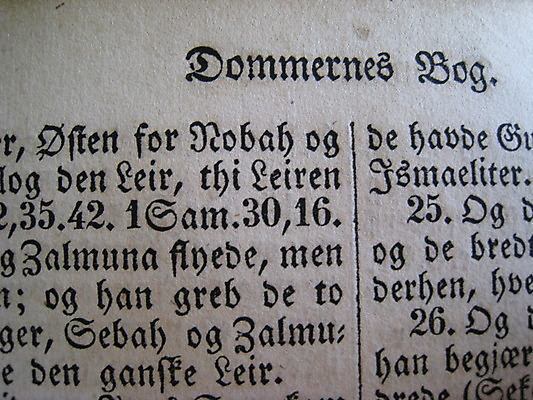 Dommernes Bog.
er, Østen for Nobah og
log den Leir, thi Leiren
2,35.42. 1Sam.30,16.
og Zalmuna flyede, men
n; og han greb de to
ger, Sebah og Zalmu⸗
e den ganske Leir.
de havde Gu
Ismaeliter.
25. Og d
og de bredt
derhen, hve
26. Og d
han begjær